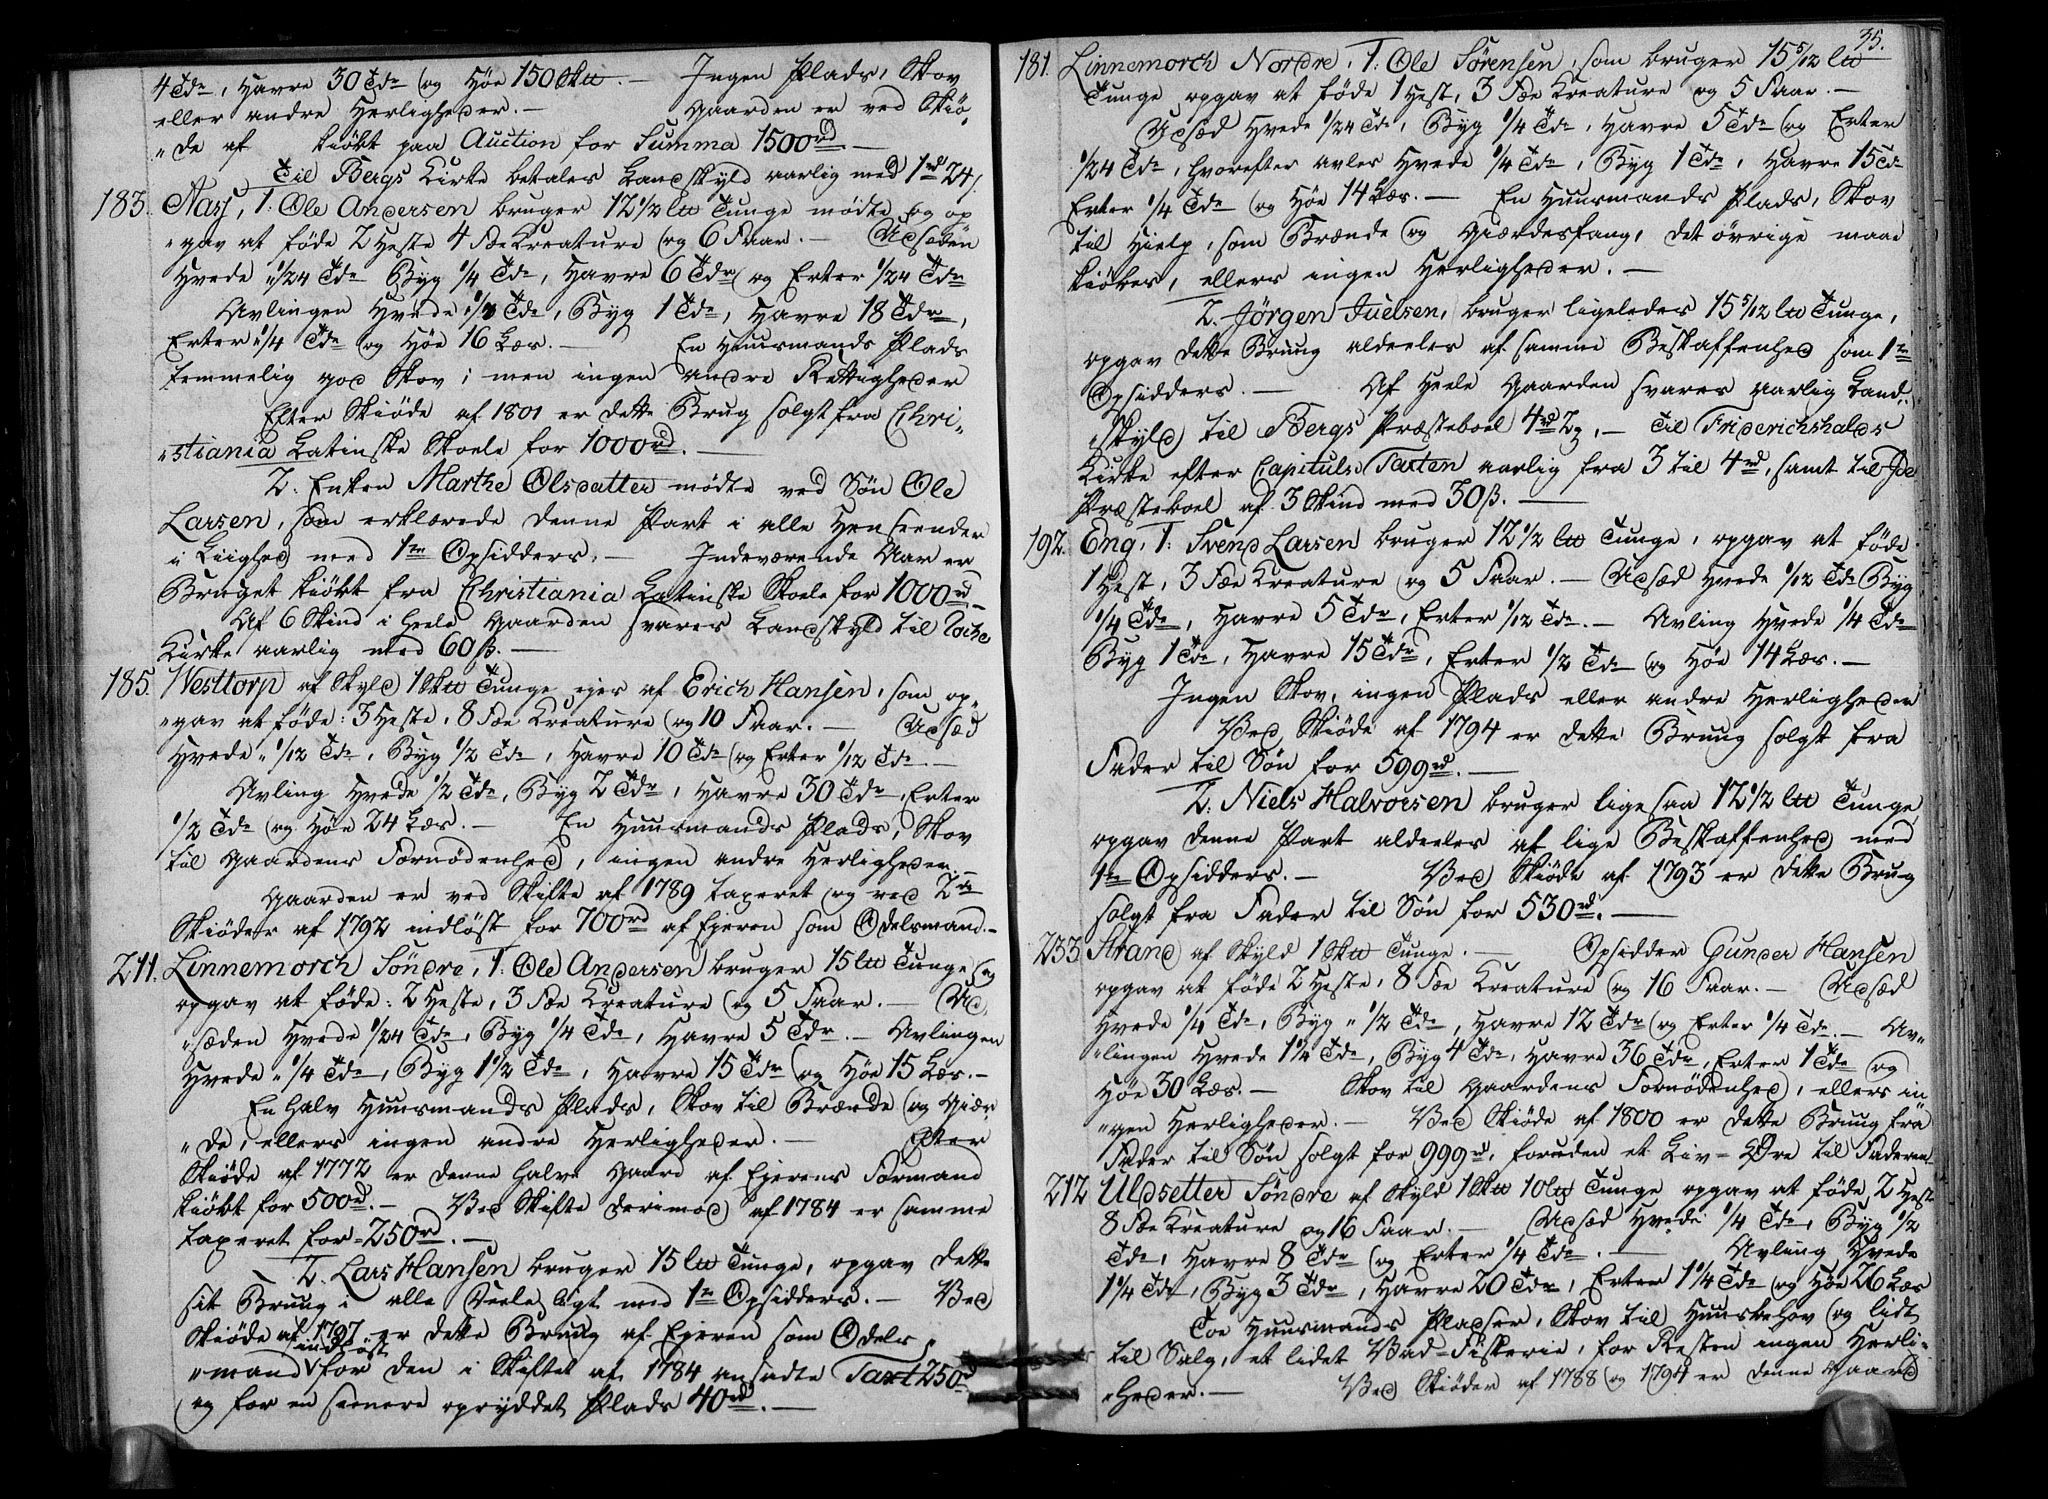 4 Tde, Havre 30 Tde og Høe 150 Sk℔. — Ingen Plads, Skov
eller andre Herligheder. — Gaarden er ved Skiø-
„de af kiøbt paa Auction for Summa 1500rd —
Til Bergs Kirke betales Landskyld aarlig med 1rd 24ß.
183. Næss, 1: Ole Andersen bruger 12 1/2 ℔ Tunge mødte og op
„gav at føde 2 Heste 4 FæeKreature og 6 Faar. — Udsæden
Hvede „1/24 Tde Byg 1/4 Tde, Havre 6 Tdr og Erter 1/24 Tde
Avlingen Hvede 1/4 Tde, Byg 1 Tde, Havre 18 Tdr,
Erter 1/4 Tde og Høe 16 Læs. — En Huusmands Plads
temmelig god Skov; men ingen andre Rettigheder
Efter Skiøde af 1801 er dette Brug solgt fra Chri-
„stiania Latinske Skole for 1000rd. —
2. Enken Marthe Olsdatter mødte ved Søn Ole
Larsen, som erklærede denne Part i alle Henseender
i Liighed med 1te Opsidders. — Indeværende Aar er
Bruget kiøbt fra Christiania Latinske Skole for 1000rd —
Af 6 Skind i heele Gaarden svares Landskyld til
Kirke aarlig med 60ß. —
185. Westtorp af Skyld 1 Sk℔ Tunge ejes af Erich Hansen, som op-
„gav at føde: 3 Heste, 8 Fæe Kreature og 10 Faar. — Udsæd
Hvede „1/12 Tde, Byg 1/2 Tde, Havre 10 Tdr og Erter 1/12 Tde. —
Avling Hvede 1/2 Tde, Byg 2 Tdr, Havre 30 Tdr, Erter
1/2 Tde og Høe 24 Læs. — En Huusmands Plads, Skov
til Gaardens Fornødenhed, ingen andre Herligheder.
Gaarden er ved Skifte af 1789 taxeret og ved 2de
Skiøder af 1792 indløst for 700rd af Ejeren som Odelsmand. —
211. Linnemorch Søndre, 1: Ole Andersen bruger 15 ℔ Tunge og
opgav at føde: 2 Heste, 3 Fæe Kreature og 5 Faar. — Ud-
„sæden Hvede 1/24 Tde, Byg 1/4 Tde, Havre 5 Tdr. — Avlingen
Hvede „1/4 Tde, Byg 1 1/2 Tde, Havre 15 Tdr og Høe 15 Læs. —
En halv Huusmands Plads, Skov til Brænde og Giær-
„de, ellers ingen andre Herligheder. — Efter
Skiøde af 1772 er denne halve Gaard af Ejerens Formand
kiøbt for 500rd. — Ved Skifte derimod af 1784 er samme
taxeret for 250rd. —
2. Lars Hansen bruger 15 ℔ Tunge, opgav dette
sit Bruug i alle Deele ligt med 1te Opsidders. — Ved
Skiøde af 1797 er dette Brug af Ejeren som Odels-
indløst
„mand for den i Skiftet af 1784 ansadte Taxt 250rd
og for en senere opryddet Plads 40rd. —
35.
181. Linnemorch Nordre, 1: Ole Sørensen, som bruger 15 5/12 ℔
Tunge opgav at føde 1 Hest, 3 Fæe Kreature og 5 Faar. —
Udsæd Hvede 1/24 Tde, Byg 1/4 Tde, Havre 5 Tde og Erter
1/24 Tde, hvorefter avles Hvede 1/4 Tde, Byg 1 Tde, Havre 15 Tde
Erter 1/4 Tde og Høe 14 Læs. — En Huusmands Plads, Skov
til Hielp, som Brænde og Giærdesfang, det øvrige maae
kiøbes, ellers ingen Herligheder. —
2. Jørgen Juelsen, bruger ligeledes 15 5/12 ℔ Tunge,
opgav dette Bruug aldeeles af samme Beskaffenhed som 1te
Opsidders. — Af heele Gaarden svares aarlig Land-
„skyld til Bergs Præsteboel 4rd 2. — Til Friderichshalds
Kirke efter Capituls Taxten aarlig fra 3 til 4rd, samt til Id
Præsteboel af 3 Skind med 30ß. —
192. Eng, 1: Svend Larsen bruger 12 1/2 ℔ Tunge, opgav at føde
1 Hest, 3 Fæe Kreature og 5 Faar. — Udsæd Hvede 1/12 Tde Byg
1/4 Tde, Havre 5 Tdr, Erter 1/12 Tde. — Avling Hvede 1/4 Tde
Byg 1 Tde, Havre 15 Tdr, Erter 1/2 Tde og Høe 14 Læs. —
Ingen Skov, ingen Plads eller andre Herligheder
Ved Skiøde af 1794 er dette Bruug solgt fra
Fader til Søn for 599rd. —
2. Niels Halvorsen bruger ligesaa 12 1/2 ℔ Tunge
opgav denne Part aldeeles af lige Beskaffenhed med
1te Opsidders. — Ved Skiøde af 1793 er dette Brug
solgt fra Fader til Søn for 530rd. —
233 Strand af Skyld 1 Sk℔ Tunge. — Opsidder Gunder Hansen
opgav at føde 2 Heste, 8 Fæe Kreature og 16 Faar. — Udsæd
Hvede 1/4 Tde, Byg „1/2 Tde, Havre 12 Tdr og Erter 1/4 Tde. — Av-
„lingen Hvede 1 1/4 Tde, Byg 4 Tde, Havre 36 Tdr, Erter 1 Tde og
Høe 30 Læs. — Skov til Gaardens Fornødenhed, ellers in-
„gen Herligheder. — Ved Skiøde af 1800 er dette Bruug fra
Fader til Søn solgt for 999rd, foruden et Liv-Øre til Faderen
212 Uldsetter Søndre af Skyld 1 Sk℔ 10 ℔ Tunge opgav at føde, 2 Heste
8 Fæe Kreature og 16 Faar. — Udsæd Hvede 1/4 Tde, Byg 1/2
Tde, Havre 8 Tdr og Erter 1/4 Tde. — Avling Hvede
1 1/4 Tde, Byg 3 Tdr, Havre 20 Tdr, Erter 1 1/4 Tde og Høe 26 Læs
Toe Huusmands Pladser, Skov til Huusbehov og lidt
til Salg, et lidet Vad-Fiskerie, for Resten ingen Herli-
„gheder. — Ved Skiøder af 1788 og 1794 er denne Gaard